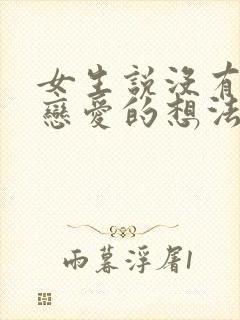 女生說沒有
戀愛的想法
雨暮浮屠1